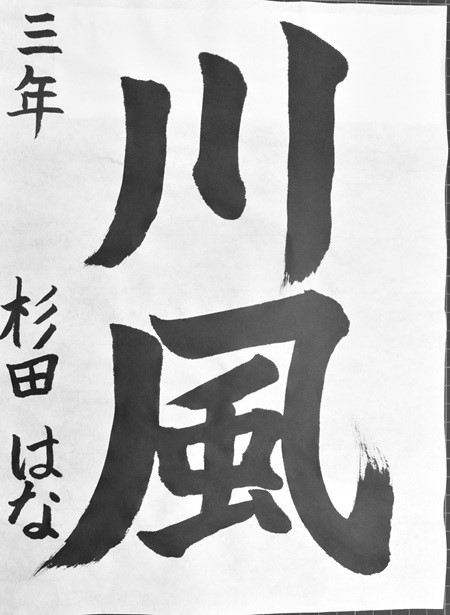 川風
三年 杉田 はな